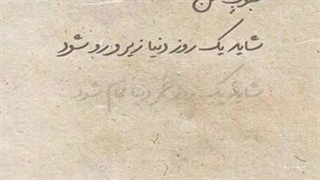 شاید یک روز دنیا زیر و رو شود
شاید یک روز دنیا تمام شود